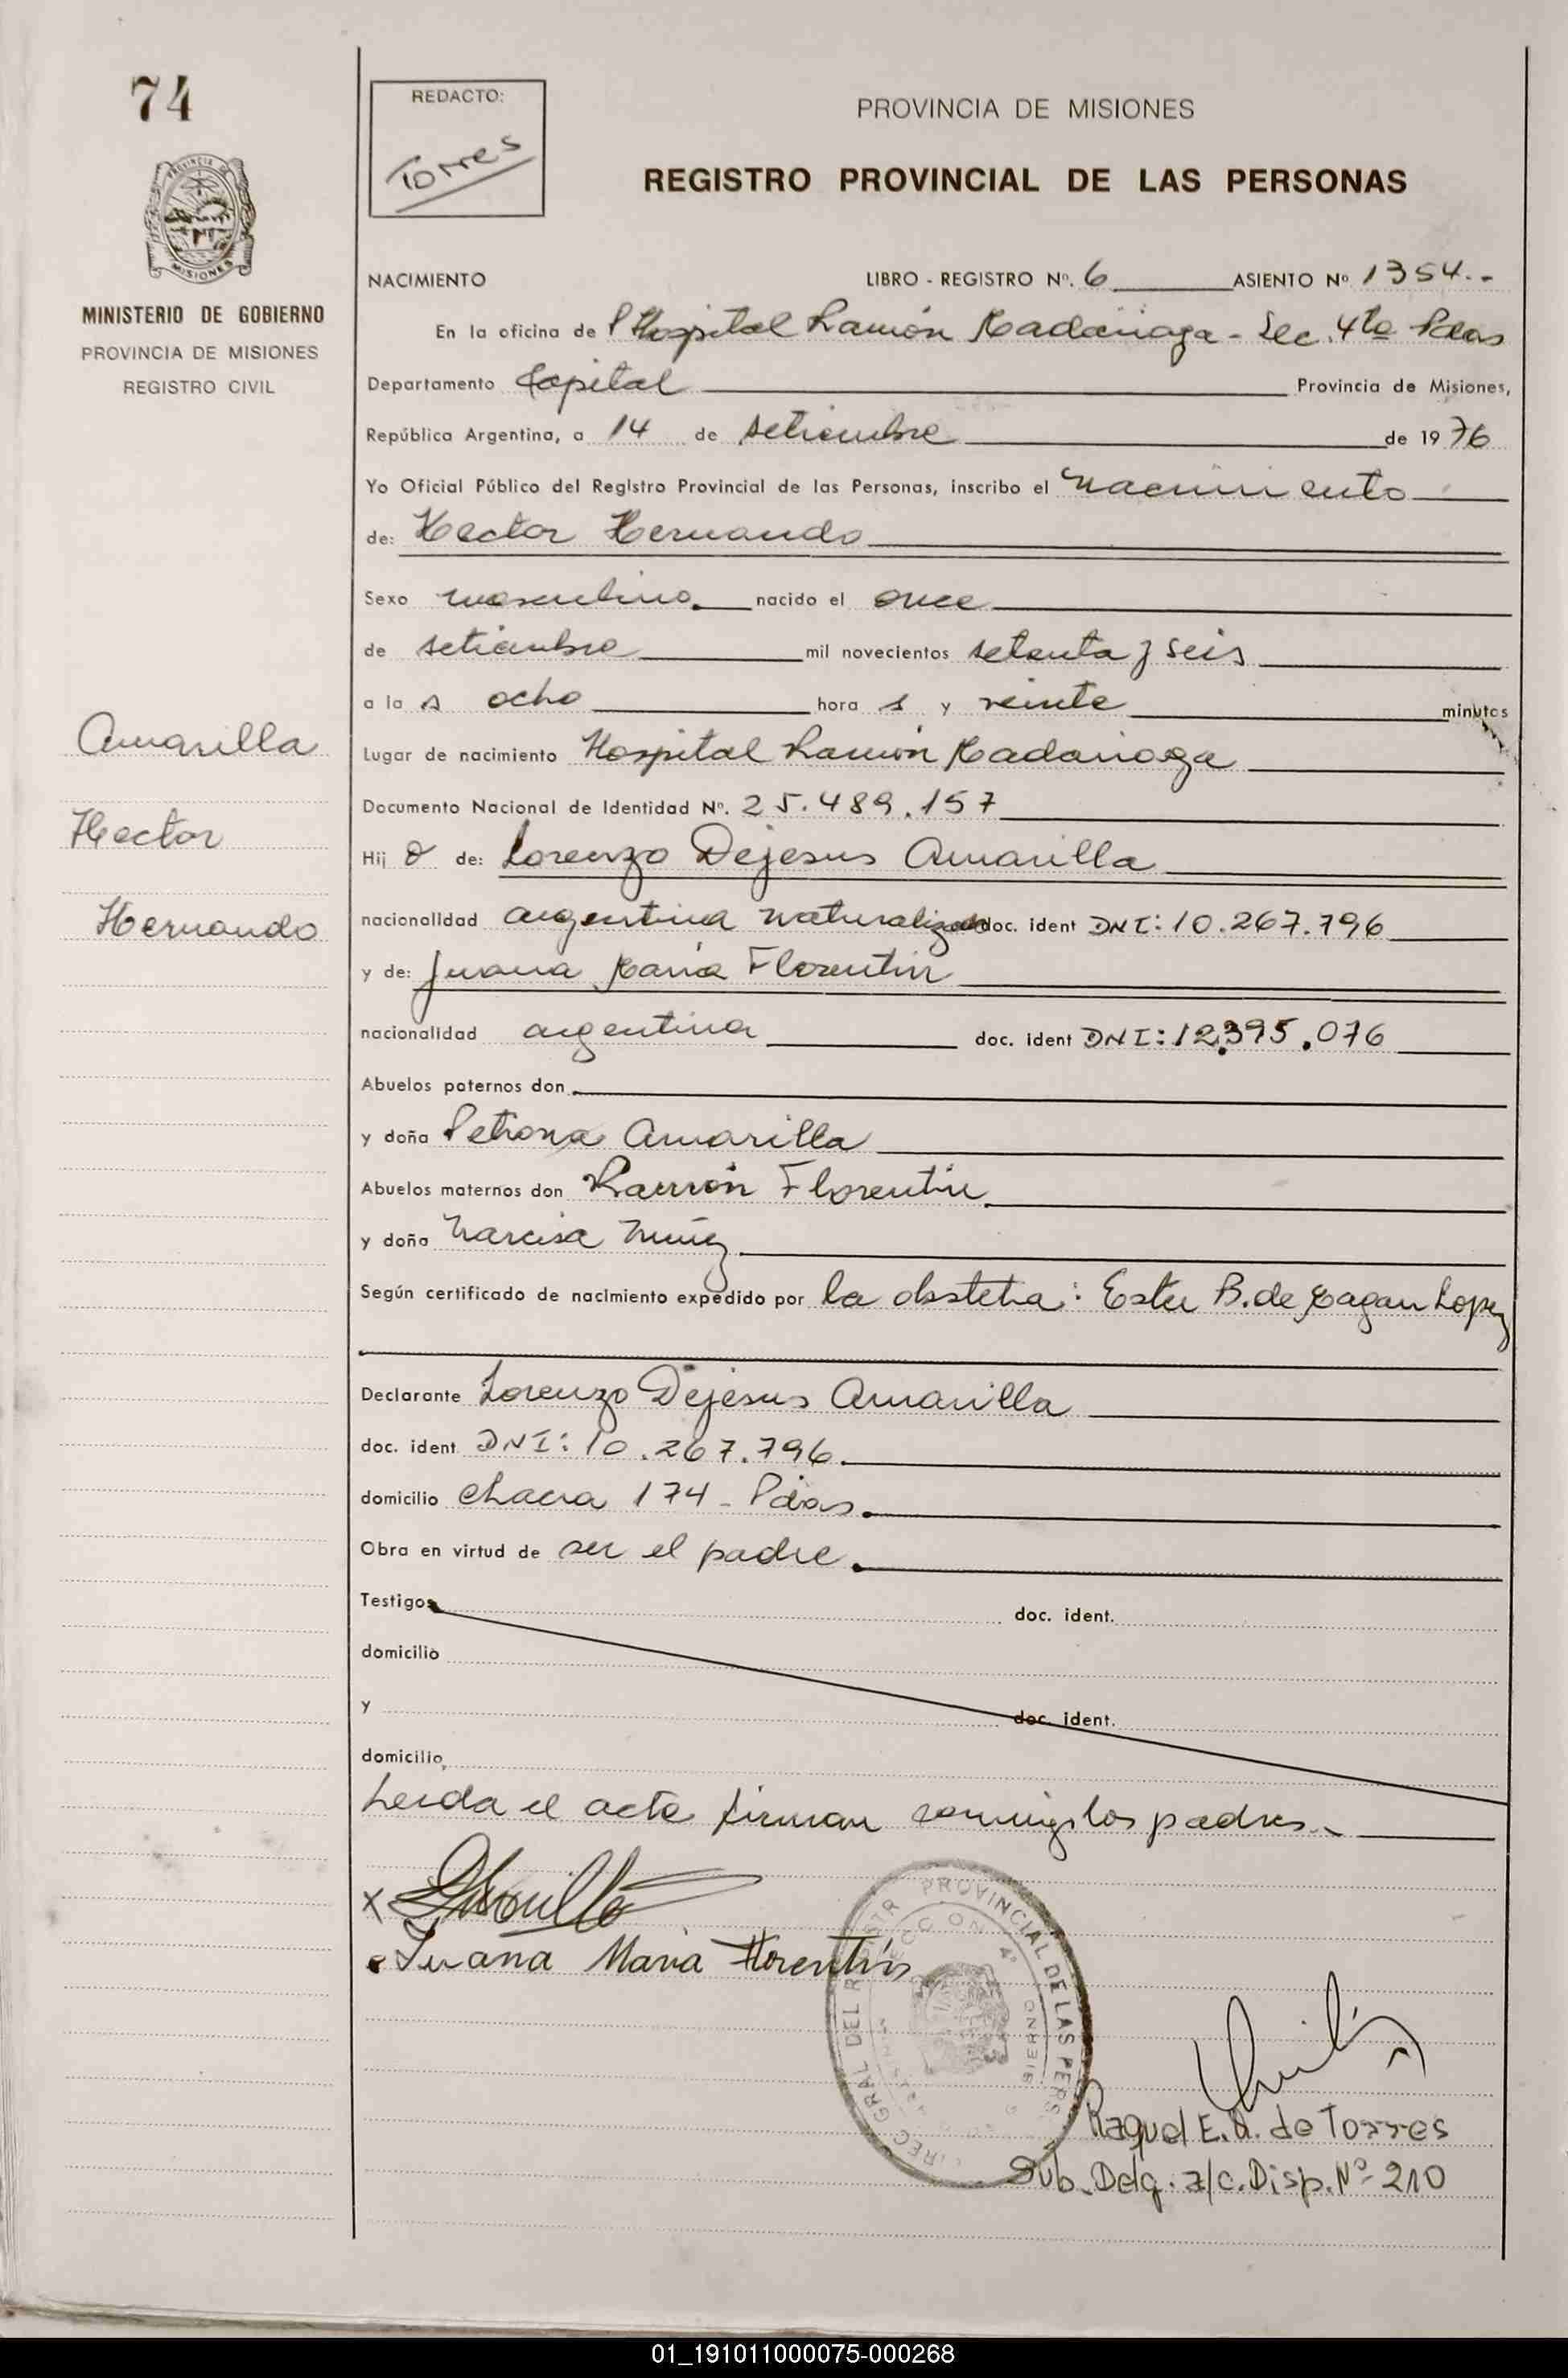 74
REDACTO:
Torres
PROVINCIA DE MISIONES
REGISTRO PROVINCIAL DE LAS PERSONAS
MISIONES
MINISTERIO DE GOBIERNO
PROVINCIA DE MISIONES
REGISTRO CIVIL
NACIMIENTO LIBRO - REGISTRO Nº. 6 ASIENTO Nº 1354.-
En la oficina de Hospital Ramón Madariaga - Sec. 4ta Pdas
Departamento Capital Provincia de Misiones,
República Argentina, a 14 de setiembre de 1976
Yo Oficial Público del Registro Provincial de las Personas, inscribo el nacimiento
de: Hector Hernando
Sexo masculino nacido el once
de setiembre mil novecientos setenta y seis
a la s ocho hora s y veinte minutos
Amarilla
Lugar de nacimiento Hospital Ramón Madariaga
Documento Nacional de Identidad Nº. 25.489.157
Hector
Hij o de: Lorenzo Dejesus Amarilla
Hernando
nacionalidad argentina naturalizado doc. ident DNI: 10.267.796
y de: Juana María Florentin
nacionalidad argentina doc. ident DNI: 12.395.076
Abuelos paternos don
y doña Petrona Amarilla
Abuelos maternos don Ramón Florentin
y doña Narcisa Nuñez
Según certificado de nacimiento expedido por la obstetra: Ester B. de Magan Lopez
Declarante Lorenzo Dejesus Amarilla
doc. ident. DNI: 10.267.796.
domicilio chacra 174 - Pdas.
Obra en virtud de ser el padre.
Testigos doc. ident.
domicilio
y doc. ident.
domicilio
Leida el acta firman conmigo los padres.
x
Juana Maria Florentin
PROVINCIAL DE LAS PERS
GRAL DEL
Raquel E. A. de Torres
Sub. Delg. a/c. Disp. Nº 210
01_191011000075-000268